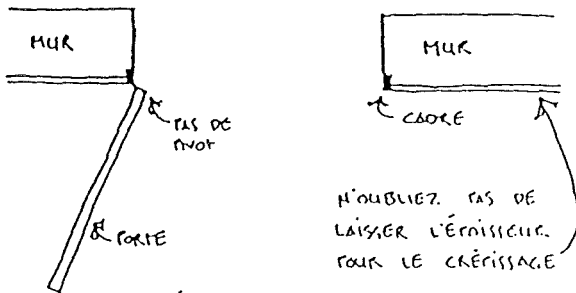 MUR
MUR
PAS DE
PIVOT
CADRE
PORTE
N'OUBLIEZ PAS DE
LAISSER L'ÉPAISSEUR
POUR LE CRÉPISSAGE